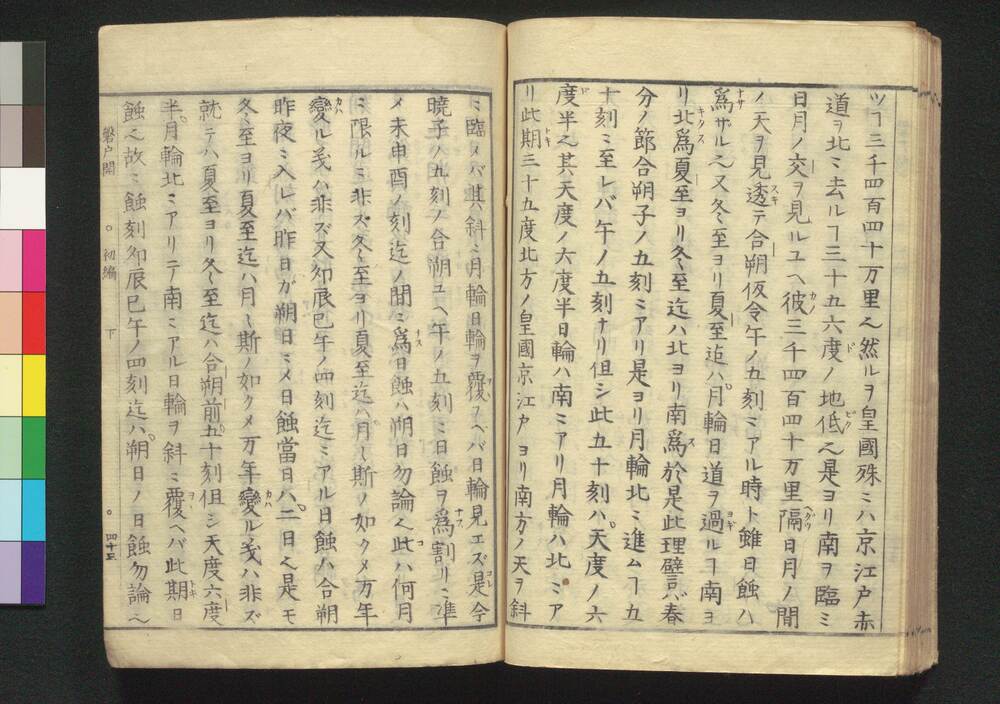 ツヿ三千四百四十万里也然ルヲ皇國殊ミハ京江戸赤
道ヲ北ミ去ルヿ三十五六度ノ地低也是ヨリ南ヲ臨ミ
日月ノ交ヲ見ルユヘ彼三千四百四十万里隔日月ノ間
ノ天ヲ見透テ合朔仮令午ノ五刻ミアル時ト雖日蝕ハ
爲ザル也又冬至ヨリ夏至迠ハ月輪日道ヲ過ルヿ南ヨ
リ北爲夏至ヨリ冬至迠ハ北ヨリ南爲於是此理譬バ春
分ノ節合朔子ノ五刻ミアリ是ヨリ月輪北ミ進ムヿ五
十刻ミ至レバ午ノ五刻ナリ但シ此五十刻ハ天度ノ六
度半也其天度ノ六度半日輪ハ南ミアリ月輪ハ北ミア
リ此期三十五度北方ノ皇國京江戸ヨリ南方ノ天ヲ斜
ミ臨メバ其斜ミ月輪日輪ヲ覆ヲヘバ日輪見エズ是今
曉子ノ五刻ノ合朔ユヘ午ノ五刻ミ日蝕ヲ爲割リミ準
メ未申酉ノ刻迄ノ間ミ爲日蝕ハ朔日勿論也此ハ何月
ミ限ルミ非ズ冬至ヨリ夏至迄ハ月〻斯ノ如クメ万年
變ル義ハ非ズ又卯辰巳午ノ四刻迄ミアル日蝕ハ合朔
昨夜ミ入レバ昨日ガ朔日ミメ日蝕當日ハ二日也是モ
冬至ヨリ夏至迄ハ月〻斯ノ如クメ万年變ル義ハ非ズ
就テハ夏至ヨリ冬至迄ハ合朔前五十刻但シ天度六度
半月輪北ミアリテ南ミアル日輪ヲ斜ミ覆ヘバ此期日
蝕也故ミ蝕刻卯辰巳午ノ四刻迄ハ朔日ノ日蝕勿論也
磐戸開 ○ 初編 下 ○ 四十五